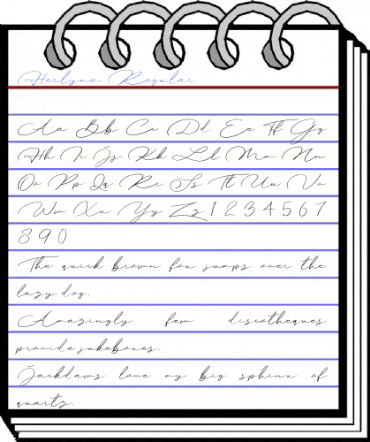 Harlynn Regular
Aa Bb Cc Dd Ee Ff Gg
Hh Ii Jj Kk Ll Mm Nn
Oo Pp Qq Rr Ss Tt Uu Vv
Ww Xx Yy Zz 1 2 3 4 5 6 7
8 9 0
The quick brown fox jumps over the
lazy dog.
Amazingly few discotheques
provide jukeboxes.
Jackdaws love my big sphinx of
quartz.